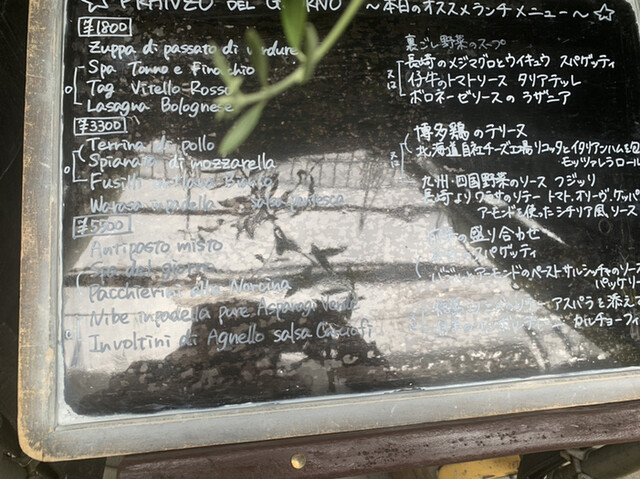 ☆ PRANZO DEL GIORNO ～本日のオススメランチメニュー～☆
¥1800
Zuppa di passato di verdure 裏ごし野菜のスープ
Spa Tonno e Finocchio 長崎のメジマグロとウイキョウ スパゲッティ
Tag Vitello Rosso 仔牛のトマトソース タリアテッレ
Lasagna Bolognese ボロネーゼソースの ラザニア
¥3300
Terrina di pollo 博多鶏のテリーヌ
Spianata di mozzarella 北海道自社チーズ工場リコッタとイタリアンハムを包
モッツァレラロール
Fusilli 九州・四国野菜のソース フジッリ
Warasa in padella salsa 長崎よりワラサのソテー トマト、オリーヴ、ケッパー
アーモンドを使ったシチリア風ソース
¥5500
Antipasto misto の盛り合わせ
Spa del giorno スパゲッティ
Paccherini alla Norcina アーモンドのペースト サルシッチャのソース
パッケリー
Nibe in padella pure Asparagi verde アスパラを添え
Involtini di Agnello salsa Carciofi カルチョーフィ